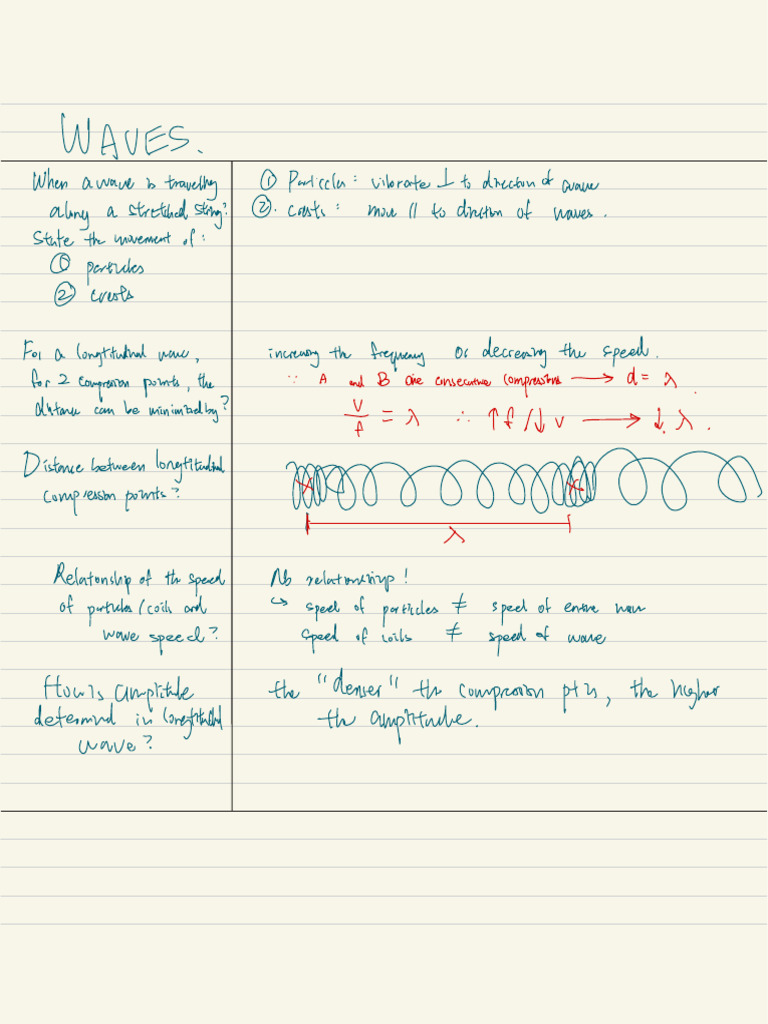 WAVES.
When a wave is travelling
along a stretched string?
State the movement of:
① particles
② crests
① Particles: vibrate ⊥ to direction of wave
②. crests: move // to direction of waves.
For a longitudinal wave,
for 2 compression points, the
distance can be minimized by?
increasing the frequency or decreasing the speed.
∵ A and B are consecutive compressions → d = λ
v/f = λ ∴ ↑f/↓v → ↓λ.
Distance between longtitudinal
compression points?
λ
Relationship of the speed
of particles/coils and
wave speed?
No relationship!
↪ speed of particles ≠ speed of entire wave
speed of coils ≠ speed of wave
How is amplitude
determined in longtitudinal
wave?
the "denser" the compression pt is, the higher
the amplitude.